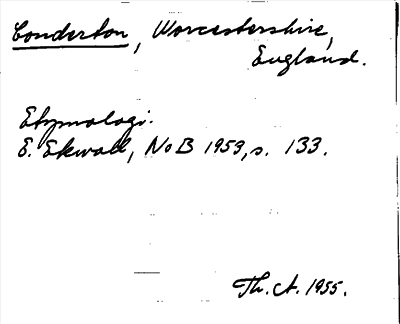 Conderton, Worcestershire,
England.
Etymologi.
E. Ekwall, NoB 1953, s. 133.
Th. A. 1955.